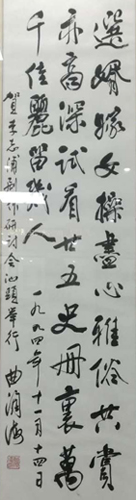 選婿嫁女操盡心雅俗共賞
亦高深試看廿五史冊裏萬
千佳麗留幾人
賀李志浦劇作研討会沁頭舉行
一九九四年十一月十四日
曲润海